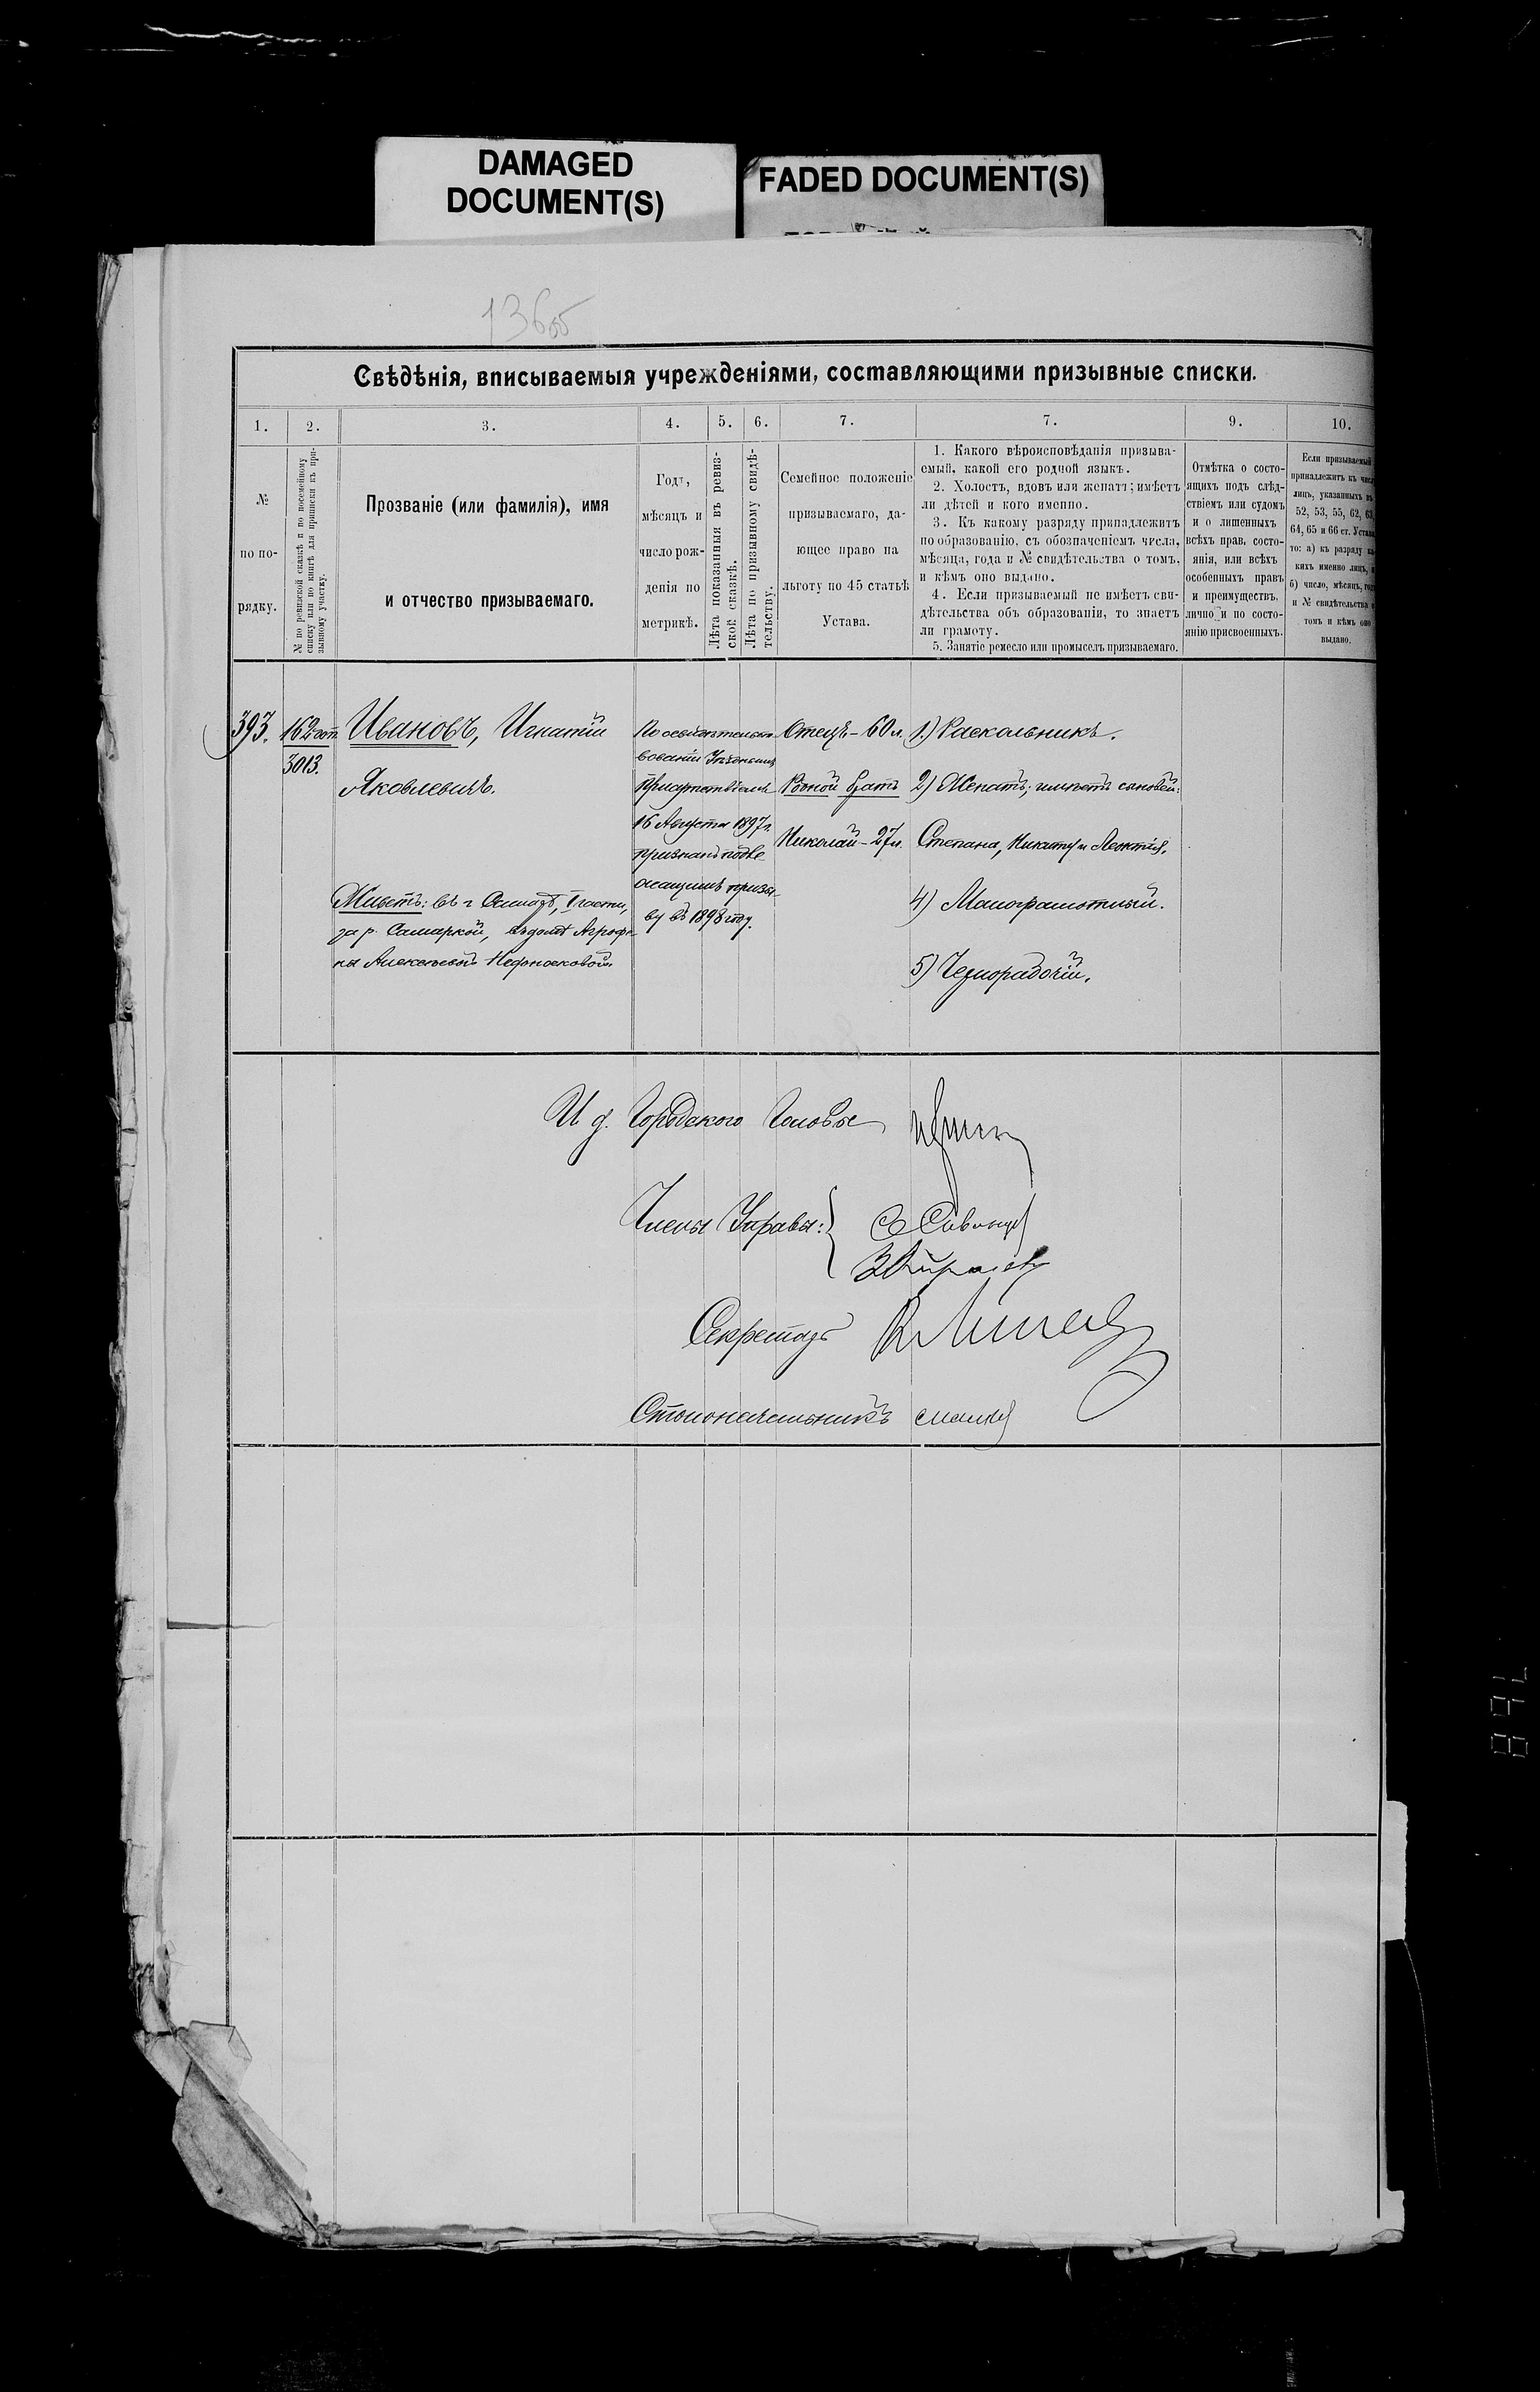 DAMAGED
DOCUMENT(S)
FADED DOCUMENT(S)
Свѣдѣнія, вписываемыя учрежденіями, составляющими призывные списки.
1.
2.
3.
4.
5.
6.
7.
7.
9.
10.
№
по по-
рядку.
№ по ревизской сказкѣ и по посемейному
списку или по книгѣ для приписки къ при-
зывному участку.
Прозваніе (или фамилія), имя
и отчество призываемаго.
Годъ,
мѣсяцъ и
число рож-
денія по
метрикѣ.
Лѣта показанныя въ ревиз-
ской сказкѣ.
Лѣта по призывному свидѣ-
тельству.
Семейное положеніе
призываемаго, да-
ющее право на
льготу по 45 статьѣ
Устава.
1. Какого вѣроисповѣданія призыва-
емый, какой его родной языкъ.
2. Холостъ, вдовъ или женатъ; имѣетъ
ли дѣтей и кого именно.
3. Къ какому разряду принадлежитъ
по образованію, съ обозначеніемъ числа,
мѣсяца, года и № свидѣтельства о томъ,
и кѣмъ оно выдано.
4. Если призываемый не имѣетъ сви-
дѣтельства объ образованіи, то знаетъ
ли грамоту.
5. Занятіе ремесло или промыселъ призываемаго.
Отмѣтка о состо-
ящихъ подъ слѣд-
ствіемъ или судомъ
и о лишенныхъ
всѣхъ прав, состо-
янія, или всѣхъ
особенныхъ правъ
и преимуществъ,
лично и по состо-
янію присвоенныхъ.
Если призываемый
принадлежитъ къ числу
лицъ, указанныхъ въ
52, 53, 55, 62, 63,
64, 65 и 66 ст. Устава
то: а) къ разряду ка-
кихъ именно лицъ, и
б) число, мѣсяцъ, годъ
и № свидѣтельства о
томъ и кѣмъ оно
выдано.
393.
3013.
Ивановъ, Игнатій
Яковлевичъ.
Живетъ: въ г. Самарѣ,
за р. Самаркой, въ домѣ Аграфе-
ны Алексѣевой
По освидѣтельст-
вованіи Уѣзднымъ
Присутствіемъ
16 Августа 1897 г.
признанъ подле-
жащимъ призы-
ву въ 1898 году.
Отецъ - 60 л.
Родной братъ
Николай - 27 л.
1) Раскольникъ.
2) Женатъ; имѣетъ сыновей:
Степана, Никиту и Леонтія.
4) Малограмотный.
5) Чернорабочій.
И д. Городского Головы
Члены Управы:
Секретарь
Столоначальникъ
768